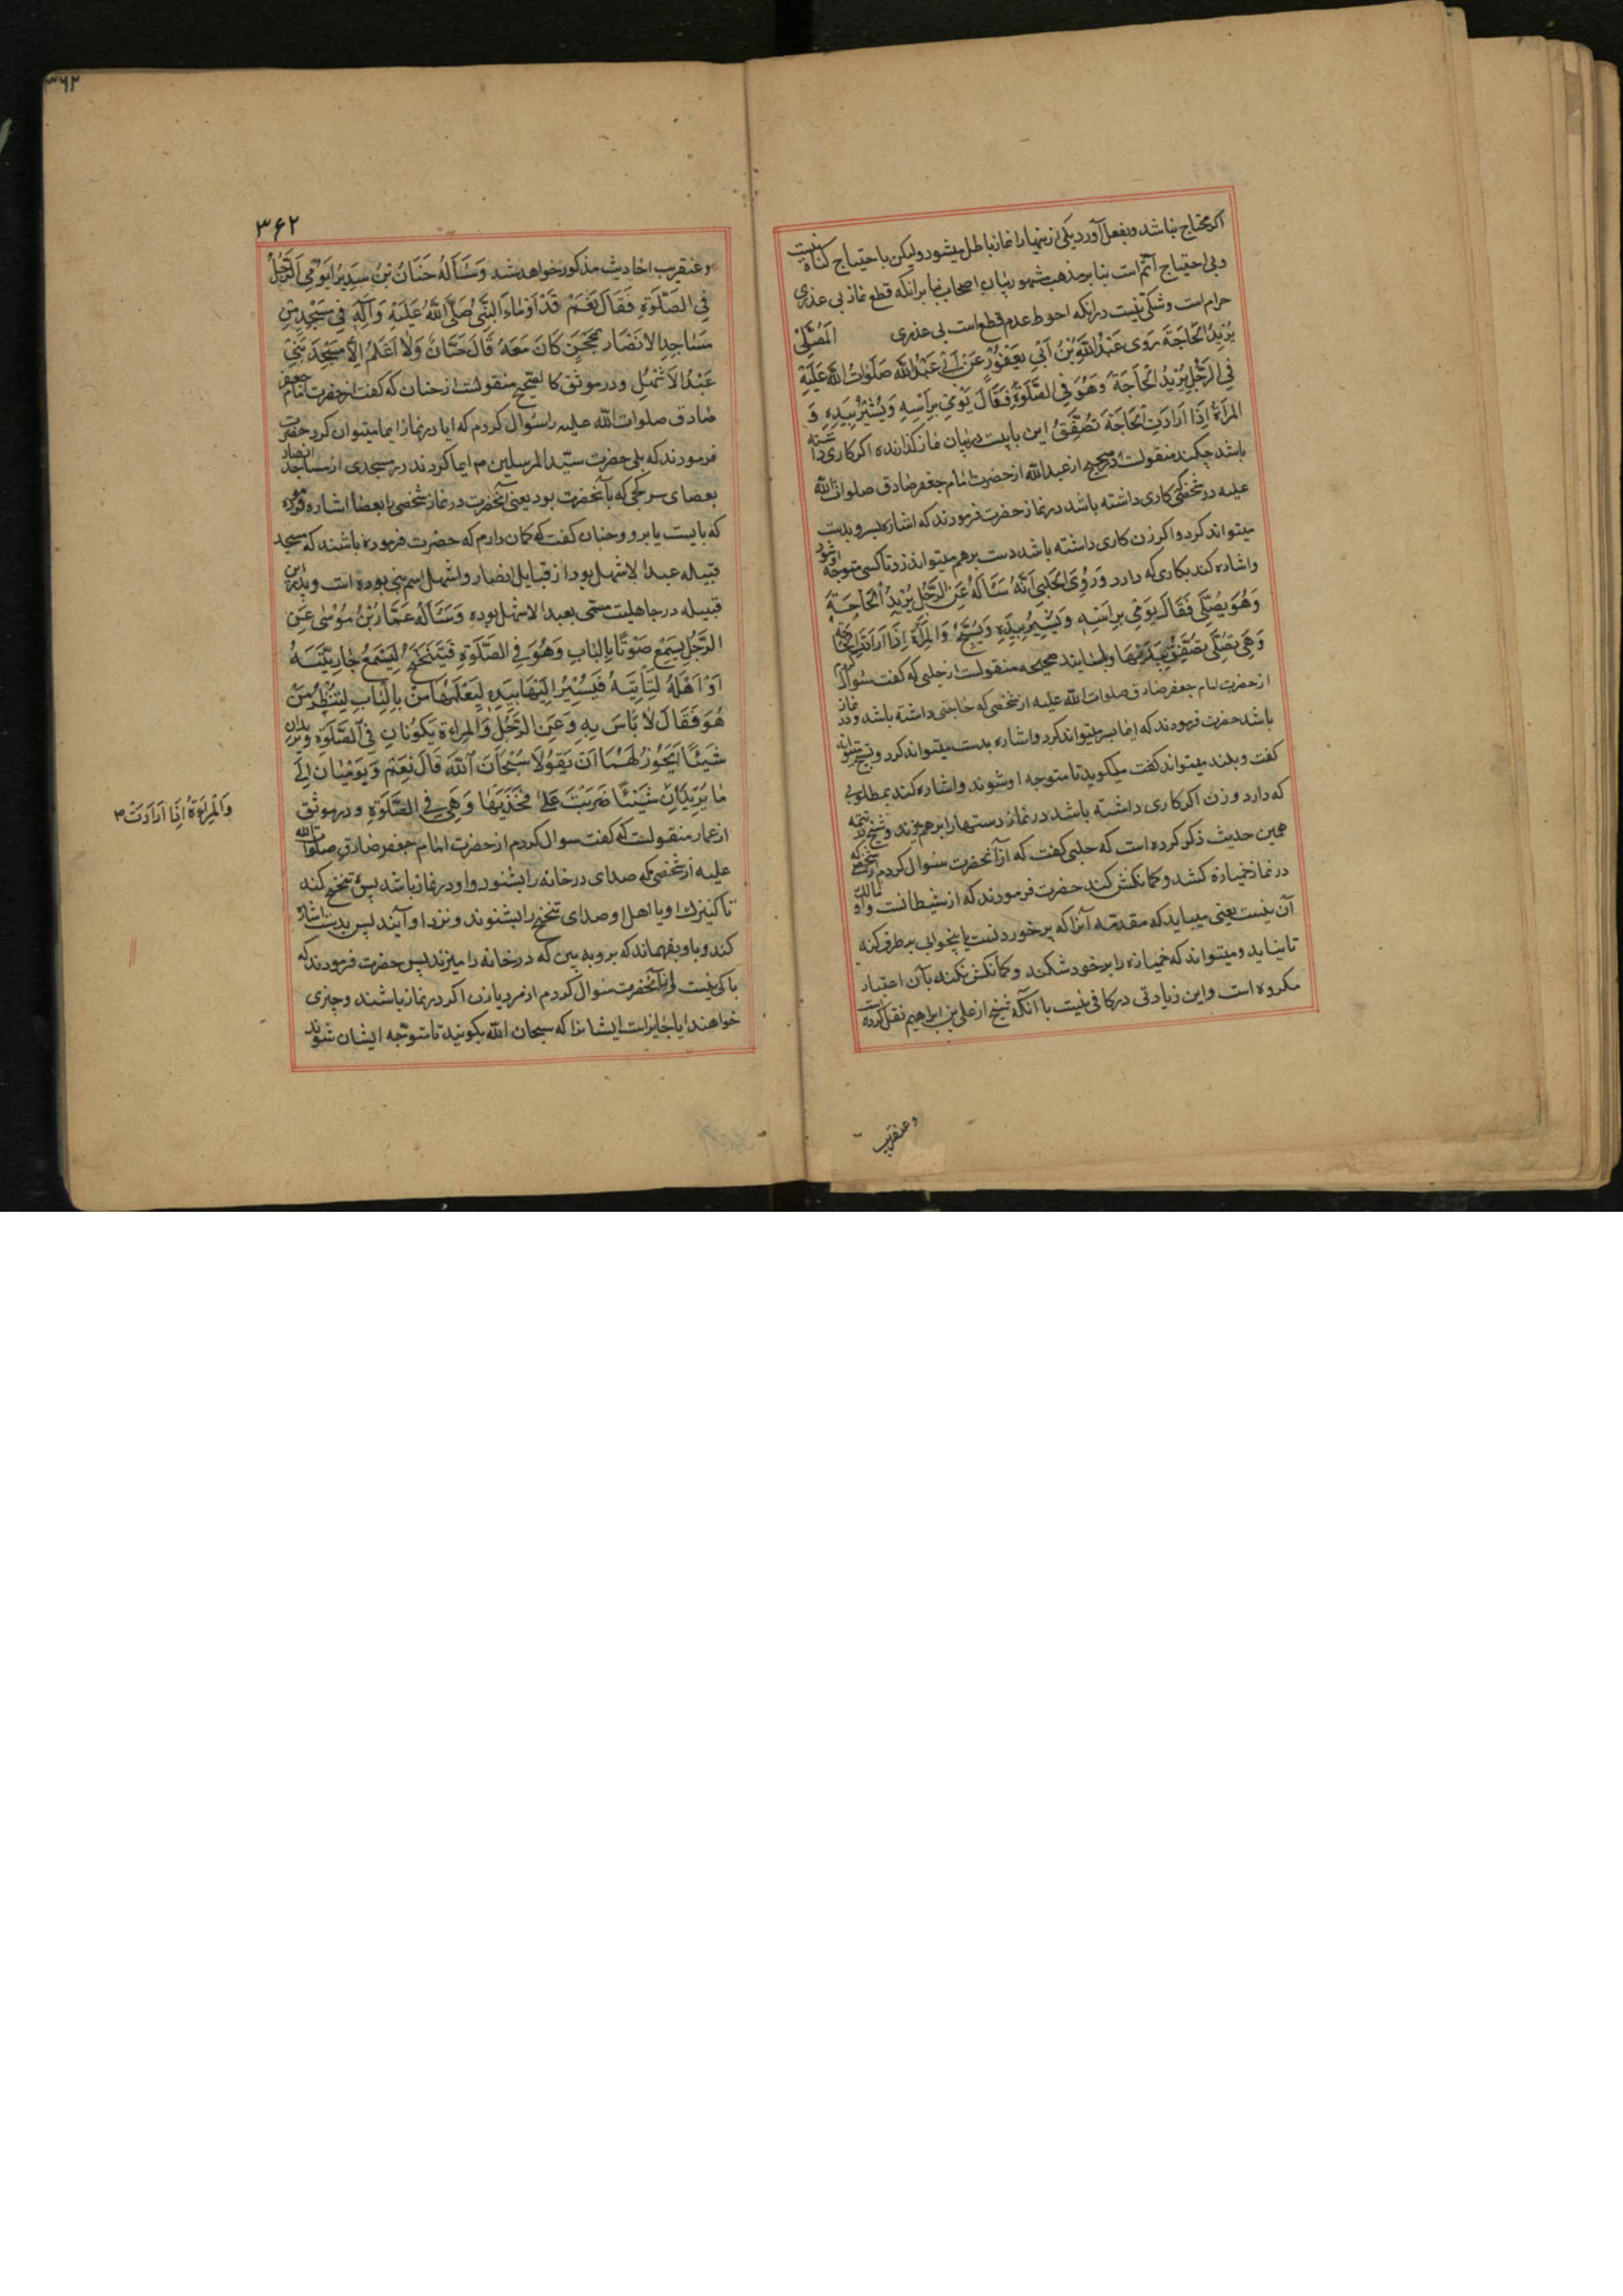 اکر محتاج نباشد و بفعل آورد یکی از ینها را نماز باطل میشود و لیکن با احتیاج کناه نیست
و بی احتیاج آثم است بنا بر مذهب مشهور میان اصحاب بنا برانکه قطع نماز بی عذری
حرام است و شکی نیست در انکه احوط عدم قطع است بی عذری اَلْمُصَلّی
یُرِیدُ الْحَاجَةَ رَوی عَبْدُ اللّٰهِ بْنُ اَبی یَعْفُورٍ عَنْ اَبی عَبْدِ اللّٰهِ صَلَوَاتُ اللّٰهِ عَلَیْهِ
فِی الرَّجُلِ یُرِیدُ الْحَاجَةَ وَهُوَ فِی الصَّلٰوةِ فَقَالَ یَوْمِی بِرَأسِهِ وَیُشِیرُ بِیَدِهِ وَ
الْمَرْأَةُ اِذَا اَرَادَتِ الْحَاجَةَ تُصَفِّقُ این بابیست در بیان نماز کذارنده اکر کاری داشته
باشد چکند منقولست در صحیح از عبد الله از حضرت امام جعفر صادق صلوات الله
علیه در شخصی کاری داشته باشد در نماز حضرت فرمودند که اشاره بسر و بدست
میتواند کرد و اکر زن کاری داشته باشد دست بر هم میتواند زد تا کسی متوجه او شود
و اشاره کند بکاری که دارد وَرُوِیَ الْحَلَبی اَنَّهُ سَئَالَهُ عَنِ الرَّجُلِ یُرِیدُ الْحَاجَةَ
وَهُوَ یُصَلّی فَقَالَ یَوْمِی بِرَأسِهِ وَیُشِیرُ بِیَدِهِ وَیُسَبِّحُ وَالْمَرْأَةُ اِذَا اَرَادَتِ الْحَاجَةَ
وَهِیَ تُصَلّی تُصَفِّقُ بِیَدَیْهَا و باسانید صحیحه منقولست از حلبی که کفت سئوال کردم
از حضرت امام جعفر صادق صلوات الله علیه از شخصی که حاجتی داشته باشد و در نماز
باشد حضرت فرمودند که ایما بسر میتواند کرد و اشاره بدست میتواند کرد و تسبیح میتواند
کفت و بلند میتواند کفت میکوید تا متوجه او شوند و اشاره کند بمطلوبی
که دارد و زن اکر کاری داشته باشد در نماز دستها را بر هم میزند و شیخ در تتمه
همین حدیث ذکر کرده است که حلبی کفت که از آنحضرت سئوال کردم از شخصی که
در نماز خمیازه کشد و کمانکش کند حضرت فرمودند که از شیطانست و او مالک
آن نیست یعنی میباید که مقدمه آنرا که پر خوردنست یا بیخوابی بر طرف کند
تا نیاید و میتواند که خمیازه را بر خود شکند و کمانکش نکند بآن اعتبار
مکروه است و این زیادتی در کافی نیست با انکه شیخ از علی بن ابراهیم نقل کرده است
و عنقریب
۳۶۲
۳۶۲
و عنقریب احادیث مذکور خواهد شد وَسَأَلَهُ حَنَانُ بْنُ سَدِیرٍ اَیَوْمِی الرَّجُلُ
فِی الصَّلٰوةِ فَقَالَ نَعَمْ قَدْ اَوْمَاءَ النَّبِیُّ صَلَّی اللّٰهُ عَلَیْهِ وَآلِهِ فِی مَسْجِدٍ مِنْ
مَسَاجِدِ الْاَنْصَارِ بِمِحْجَنٍ کَانَ مَعَهُ قَالَ حَنَانٌ وَلَا اَعْلَمُ اِلَّا مَسْجِدَ بَنِی
عَبْدُ الْاَشْهَلِ و در موثق کالصحیح منقولست از حنان که کفت از حضرت امام جعفر
صادق صلوات الله علیه سئوال کردم که ایا در نماز ایما میتوان کرد حضرت
فرمودند که بلی حضرت سیّد المرسلین ص ایما کردند در مسجدی از مساجد انصار
بعصای سر کجی که با آنحضرت بود یعنی آنحضرت در نماز شخصی را بعصا اشاره فرموده
که بایست یا برو و حنان کفت که کمان دارم که حضرت فرموده باشند که مسجد
قبیله عبد الاشهل بود از قبایل انصار و اشهل اسم بتی بوده است و پدر این
قبیله در جاهلیت مسمی بعبد الاشهل بوده وَسَئَالَهُ عَمَّارُ بْنُ مُوْسٰی عَنِ
الرَّجُلِ یَسْمَعُ صَوْتًا بِالْبَابِ وَهُوَ فِی الصَّلٰوةِ فَیَتَنَحْنَحُ لِیَسْمَعَ جَارِیَتُهُ
اَوْ اَهْلَهُ لِتَأتِیَهُ فَیُشِیرُ اِلَیْهَا بِیَدِهِ لِیُعْلِمَهَا مَنْ بِالْبَابِ لِتَنْظُرَ مَنْ
هُوَ فَقَالَ لَا بَأسَ بِهِ وَعَنِ الرَّجُلِ وَالْمَرْاَةِ یَکُونَانِ فِی الصَّلٰوةِ وَیُرِیدَانِ
شَیْئًا اَیَجُوزُ لَهُمَا اَنْ یَقُولَا سُبْحَانَ اللّٰهِ قَالَ نَعَمْ وَیَوْمِیَانِ اِلٰی
مَا یُرِیدَانِ شَیْئًا ضَرَبَتْ عَلٰی فَخِذَیْهَا وَهِیَ فِی الصَّلٰوةِ و در موثق
از عمار منقولست که کفت سوال کردم از حضرت امام جعفر صادق صلوات الله
علیه از شخصی که صدای در خانه را بشنود و او در نماز باشد پس تنحنح کند
تا کنیزک او یا اهل او صدای تنحنح را بشنوند و نزد او آیند پس بدست اشاره
کند و باو بفهماند که برو به بین که در خانه را میزند پس حضرت فرمودند که
باکی نیست و از آنحضرت سئوال کردم از مرد یا زن اکر در نماز باشند و چیزی
خواهند ایا جایزاست ایشانرا که سبحان الله بکویند تا متوجّه ایشان شوند
وَالْمَرْاَةُ اِذَا اَرَادَتْ